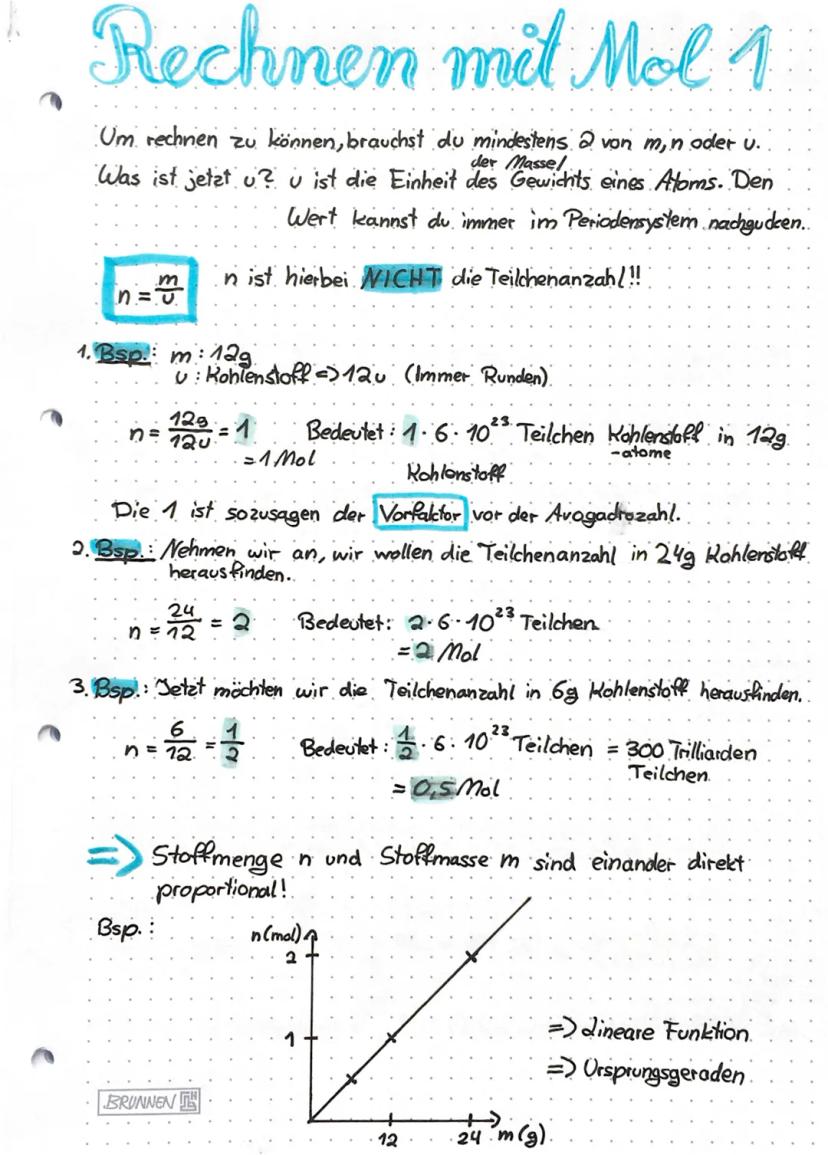 Rechnen mit Mol 1
Um rechnen zu können, brauchst du mindestens 2 von m, n oder u.
der Masse/
Was ist jetzt u? u ist die Einheit des Gewichts eines Atoms. Den
Wert kannst du immer im Periodensystem nachgucken.
n = m/u n ist hierbei NICHT die Teilchenanzahl!!
1. Bsp.: m : 12g
u : Kohlenstoff => 12u (Immer Runden)
n = 12g/12u = 1 Bedeutet : 1 · 6 · 10²³ Teilchen Kohlenstoff in 12g
= 1 Mol -atome
Kohlenstoff
Die 1 ist sozusagen der Vorfaktor vor der Avogadrozahl.
2. Bsp.: Nehmen wir an, wir wollen die Teilchenanzahl in 24g Kohlenstoff
herausfinden.
n = 24/12 = 2 Bedeutet: 2 · 6 · 10²³ Teilchen
= 2 Mol
3. Bsp.: Jetzt möchten wir die Teilchenanzahl in 6g Kohlenstoff herausfinden.
n = 6/12 = 1/2 Bedeutet : 1/2 · 6 · 10²³ Teilchen = 300 Trilliarden
Teilchen
= 0,5 Mol
=> Stoffmenge n und Stoffmasse m sind einander direkt
proportional!
Bsp.:
n(mol)
2
1
=> Lineare Funktion
=> Ursprungsgeraden
BRUNNEN
12 24 m(g)